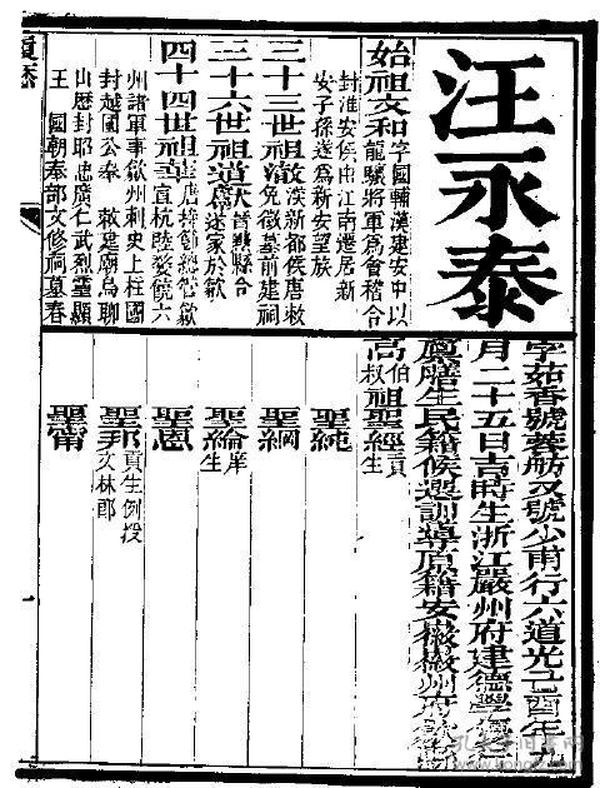 汪永泰
始祖文和字國輔漢建安中以
龍驤將軍為會稽令
封淮安侯由江南遷居新
安子孫遂為新安望族
三十三世祖澈漢新都侯唐敕
免徵墓前建祠
三十六世祖道
遂家於歙
四十四世祖華唐持節總管歙
宣杭睦婺饒六
州諸軍事歙州刺史上柱國
封越國公奉 敕建廟烏聊
山歷封昭忠廣仁武烈靈顯
王 國朝奉部文修祠墓春
字茹香號蓉舫又號少甫行六道光己酉年
月二十五日吉時生浙江嚴州府建德學
廩膳生民籍候選訓導原籍安徽徽州府歙
高伯
叔祖聖經貢
生
聖純
聖綱
聖綸庠
生
聖恩
聖邦貢生例授
文林郎
聖甯
履歷
一